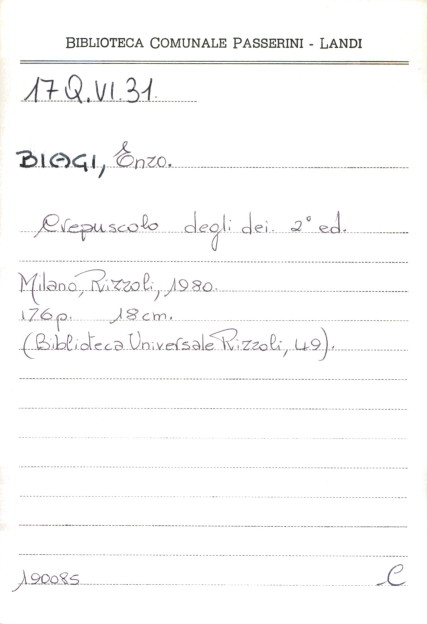 BIBLIOTECA COMUNALE PASSERINI - LANDI
17 Q.VI.31
BIAGI, Enzo.
Crepuscolo degli dei. 2° ed.
Milano, Rizzoli, 1980.
176p. 18cm.
(Biblioteca Universale Rizzoli, 49).
190085 C